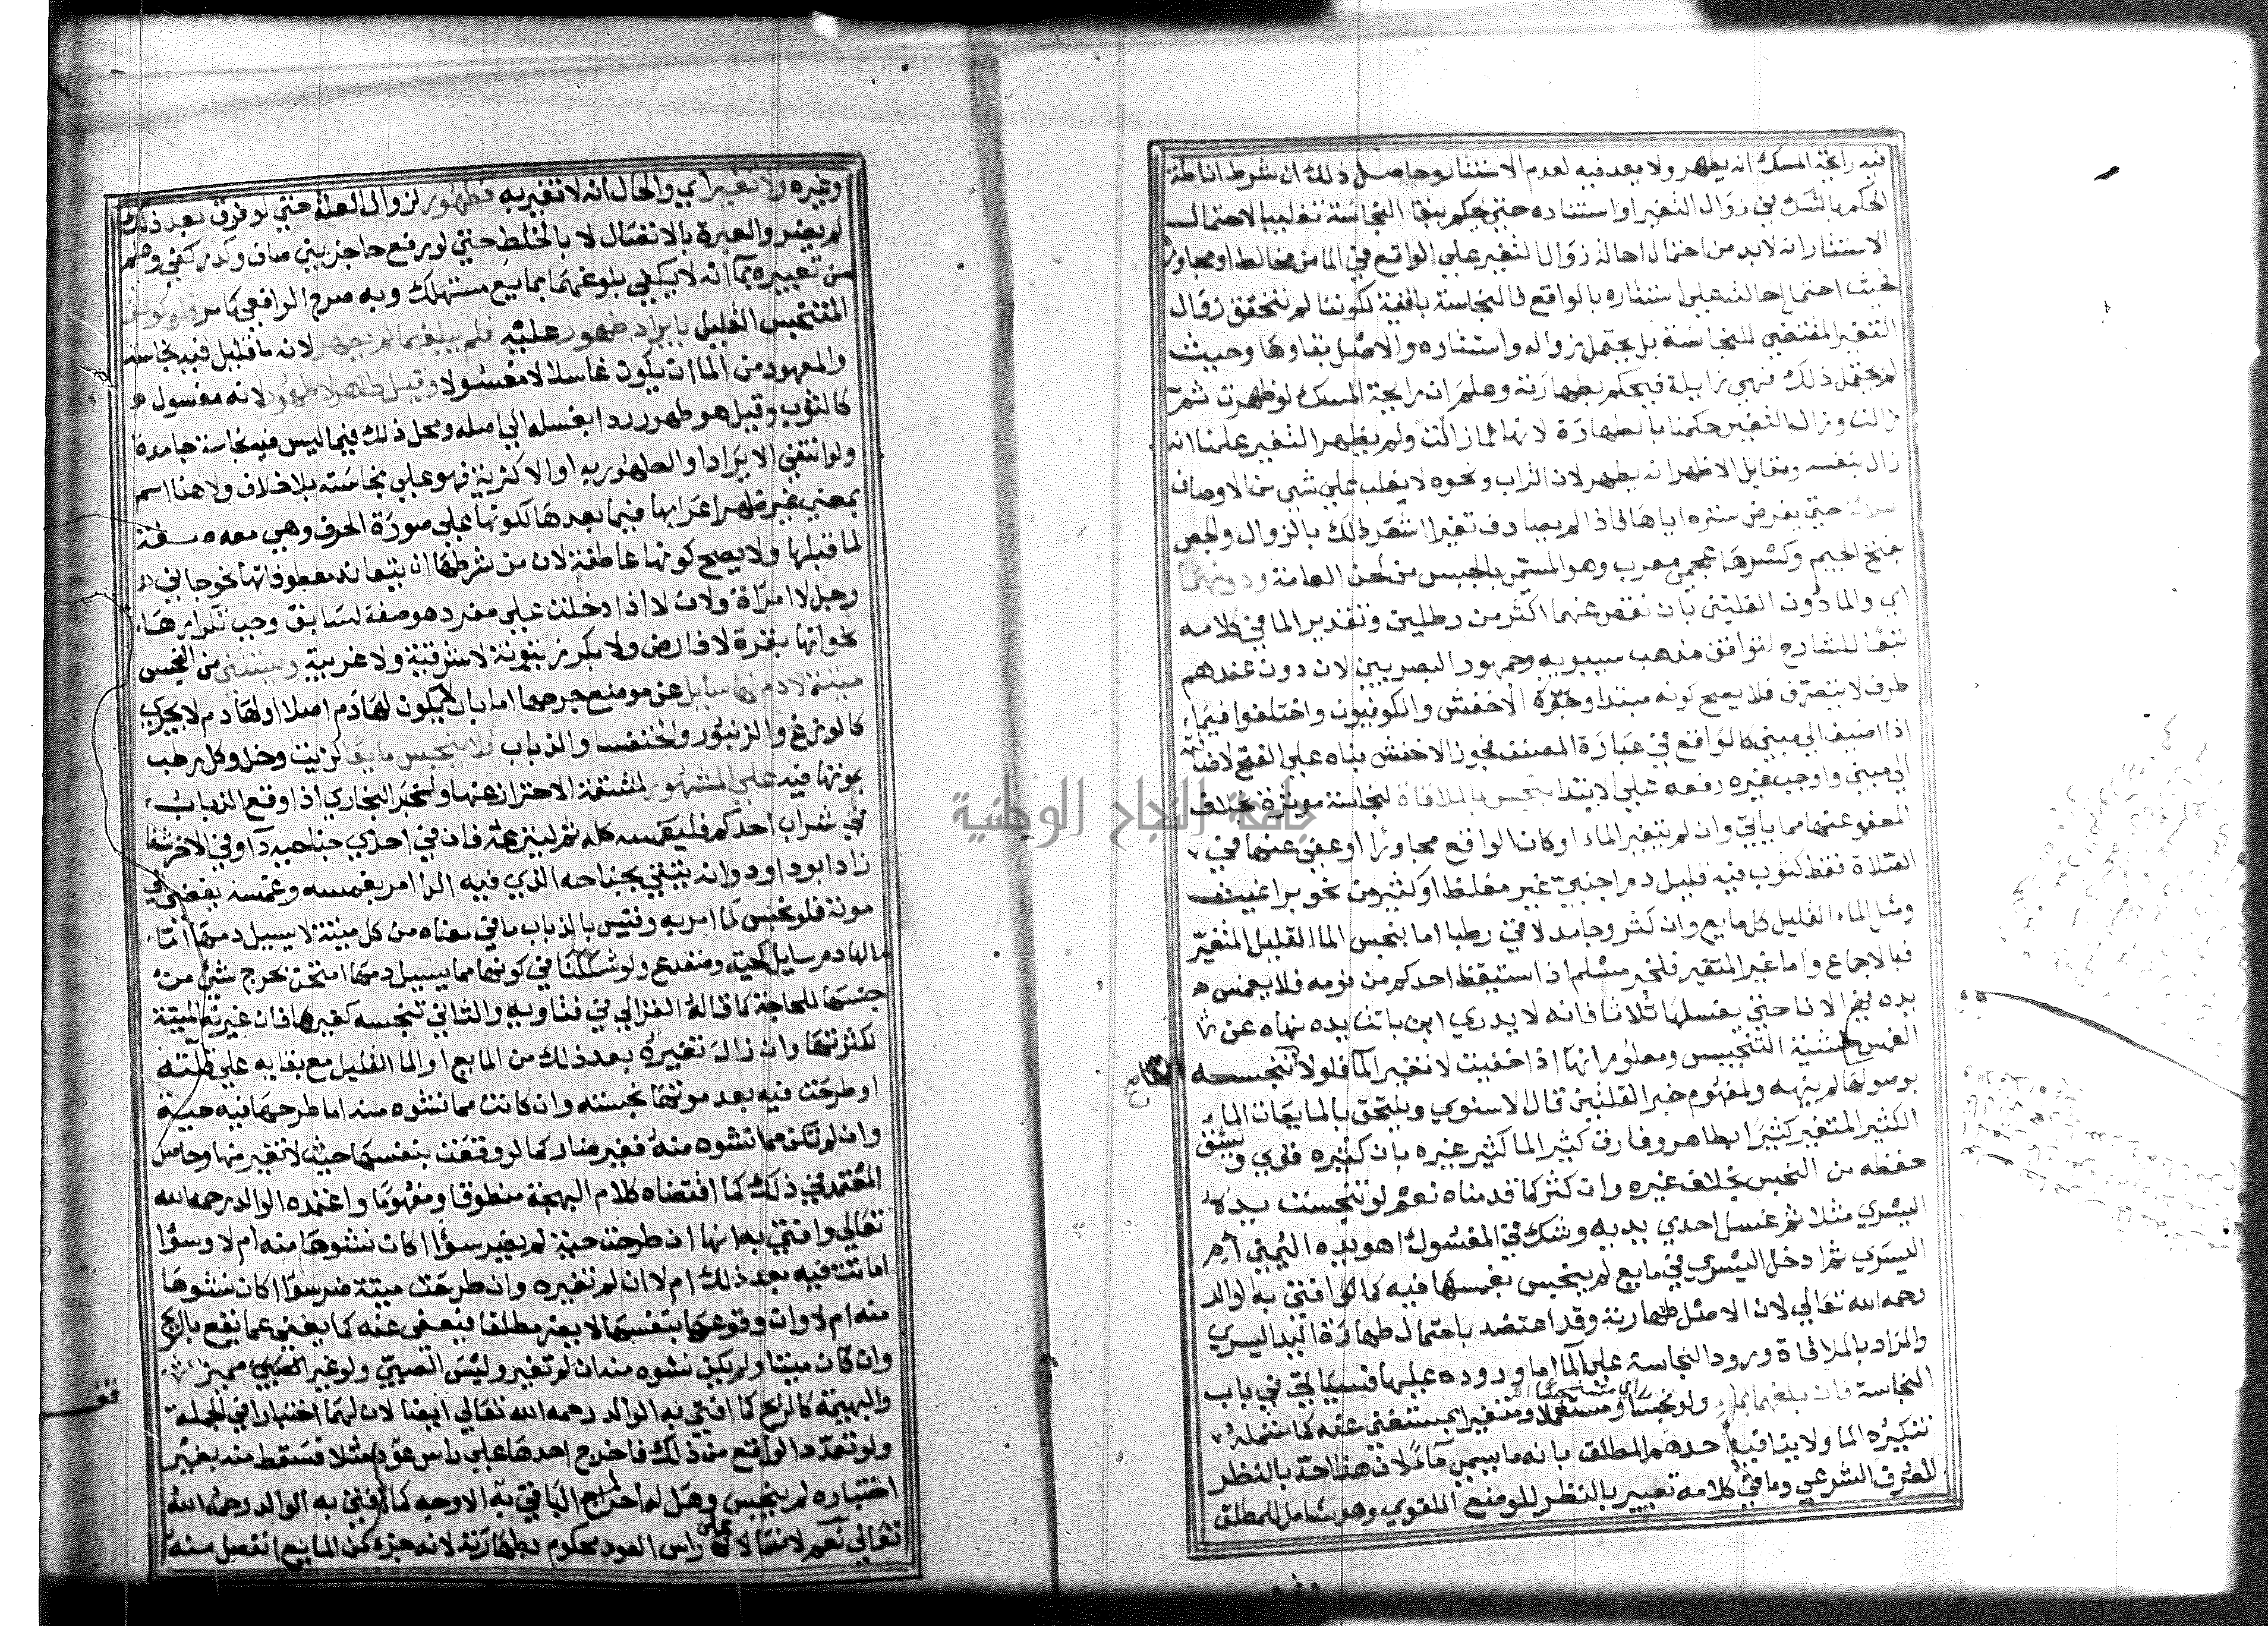 فيه رائحة المسك انه يطهر ولا يعد فيه لعدم الاستتار وحاصل ذلك ان شرط اناطة
الحكم بالشك في زوال التغير او استتاره حتي يحكم ببقا النجاسة تغليبا لاحتمال
الاستتار انه لا بد من احتمال احالة زوال التغير علي الواقع في الما من مخالط او مجاور
فحيث احتمل احالته علي استتاره بالواقع فالنجاسة باقية لكوننا لم نتحقق زوال
التغير المقتضي للنجاسة بل يحتمل زواله واستتاره والاصل بقاوها وحيث
لم يحتمل ذلك فهي زايلة فيحكم بطهارته وعلم ان رايحة المسك لو ظهرت ثم
زالت وزال التغير حكمنا بالطهارة لانها لما زالت ولم يظهر التغير علمنا انه
زال بنفسه ومقابل الاظهر انه يطهر لان التراب ونحوه لا يغلب علي شي من الاوصاف
حتي يفرض ستره اياها فاذا لم يصادف تغيرا اشعر ذلك بالزوال والجص
بفتح الجيم وكسرها عجمي معرب وهو المسمي بالجبس من لحن العامة ودونهما
اي والما دون القلتين بان نقص عنهما اكثر من رطلين وتقدير الما في كلامه
تبعا للشارح لتوافق مذهب سيبويه وجمهور البصريين لان دون عندهم
ظرف لا يتصرف فلا يصح كونه مبتدا وجوزه الاخفش والكوفيون واختلفوا فيما
اذا اضيف الي مبني كالواقع في عبارة المصنف فجوز الاخفش بناه علي الفتح لاضافته
الي مبني واوجب غيره رفعه علي الابتدا ينجس بالملاقاة لنجاسة موثرة بخلاف
المعفو عنها مما ياتي وان لم يتغير الماء او كان الواقع مجاورا او عفي عنها في
الصلاة فقط كثوب فيه قليل دم اجنبي غير مغلظ او كثير من نحو براغيث
ومثل الماء القليل كل مايع وان كثر وجامد لاقي رطبا اما ينجس الما القليل المتغير
فبالاجماع واما غير المتغير فلخبر مسلم اذا استيقظ احدكم من نومه فلا يغمس
يده في الانا حتي يغسلها ثلاثا فانه لا يدري اين باتت يده نهاه عن
الغمس خشية التنجيس ومعلوم انها اذا خفيت لا تغير الما فلولا تنجسه
بوصولها لم ينهه ولمفهوم خبر القلتين قال الاسنوي ويلتحق بالمايعات الماء
الكثير المتغير كثيرا بطاهر وفارق كثير الما كثير غيره بان كثيره قوي ويشق
حفظه من النجس بخلاف غيره وان كثر كما قدمناه نعم لو تنجست يده
اليسري مثلا ثم غسل احدي يديه وشك في المغسول اهو يده اليمني ام
اليسري ثم ادخل اليسري في مايع لم يتنجس بغمسها فيه كما افتي به الوالد
رحمه الله تعالي لان الاصل طهارته وقد اعتضد باحتمال طهارة اليد اليسري
والمراد بالملاقاة ورود النجاسة علي الما اما وروده عليها فسياتي في باب
النجاسة فان بلغهما بماء ولو نجسا او مستعملا او متغيرا بمستغني عنه كما شمله
تنكيره الما ولا ينافيه حدهم المطلق بانه ما يسمي ماء لان هذا حد بالنظر
للعرف الشرعي وما في كلامه تعبير بالنظر للوضع اللغوي وهو شامل للمطلق
وغيره ولا تغير اي والحال انه لا تغير به فطهور لزوال العلة حتي لو فرق بعد ذلك
لم يضر والعبرة بالاتصال لا بالخلط حتي لو رفع حاجز بين صاف وكدر كفي وعلم
من تعبيره بما انه لا يكفي بلوغهما بمايع مستهلك وبه صرح الرافعي كما مر فلو كوثر
المتنجس القليل بايراد طهور عليه فلم يبلغهما لم يطهر لانه ما قليل فيه نجاسة
والمعهود من الما ان يكون غاسلا لا مغسولا وقيل طاهر لا طهور لانه مغسول
كالثوب وقيل هو طهور ردا بغسله الي اصله ومحل ذلك فيما ليس فيه نجاسة جامدة
ولو انتفي الايراد او الطهورية او الاكثرية فهو علي نجاسته بلا خلاف ولا هنا اسم
بمعني غير ظهر اعرابها فيما بعدها لكونها علي صورة الحرف وهي معه صفة
لما قبلها ولا يصح كونها عاطفة لان من شرطها ان يتعاند معطوفاتها نحو جاني
رجل لا امراة ولان لا اذا دخلت علي مفرد هو صفة لسابق وجب تكرارها
نحو انها بقرة لا فارض ولا بكر زيتونة لا شرقية ولا غربية ويستثني من النجس
ميتة لا دم لها سايل عن موضع جرحها اما بان لا يكون لها دم اصلا او لها دم لا يجري
كالوزغ والزنبور والخنفسا والذباب فلا ينجس مايعا كزيت وخل وكل رطب
بموتها فيه علي المشهور لمشقة الاحتراز عنها ولخبر البخاري اذا وقع الذباب
في شراب احدكم فليغمسه كله ثم لينزعه فان في احدي جناحيه دآ وفي الاخر شفا
زاد ابو داود وانه يتقي بجناحه الذي فيه الدا امر بغمسه وغمسه يفضي الي
موته فلو نجس لما امر به وقيس بالذباب ما في معناه من كل ميتة لا يسيل دمها اما
مالها دم سايل كحية وضفدع ولو شككنا في كونها مما يسيل دمها امتحن بجرح شي من
جنسها للحاجة كما قاله الغزالي في فتاويه والثاني تنجسه كغيرها فان غيرته الميتة
لكثرتها وان زال تغيره بعد ذلك من المايع او الما القليل مع بقايه علي قلته
او طرحت فيه بعد موتها نجسته وان كانت مما نشوه منه اما طرحها فيه حية
وان لم تكن مما نشوه منه فغير ضار كما لو وقعت بنفسها حيث لا تغير منها وحاصل
المعتمد في ذلك كما اقتضاه كلام البهجة منطوقا ومفهوما واعتمده الوالد رحمه الله
تعالي وافتي به انها ان طرحت حية لم يضر سوا اكان نشوها منه ام لا وسوا
اماتت فيه بعد ذلك ام لا ان لم تغيره وان طرحت ميتة ضر سوا اكان نشوها
منه ام لا وان وقوعها بنفسها لا يضر مطلقا فيعفي عنه كما يعفي عما يقع بالريح
وان كان ميتا ولم يكن نشوه منه ان لم تغير وليس الصبي ولو غير مميز
والبهيمة كالريح كما افتي به الوالد رحمه الله تعالي ايضا لان لهما اختيارا في الجملة
ولو تعدد الواقع من ذلك فاخرج احدها علي راس عود مثلا فسقط منه بغير
اختياره لم ينجس وهل له اخراج الباقي به الاوجه كما افتي به الوالد رحمه الله
تعالي نعم لان ما علي راس العود محكوم بطهارته لانه جزء من المايع انفصل منه
جامعة النجاح الوطنية